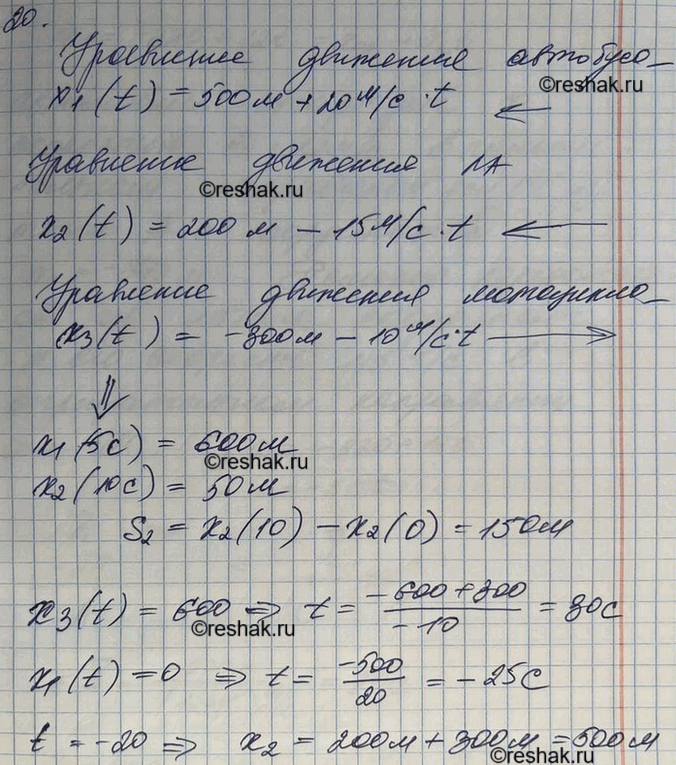 20.
Уравнение движения автобуса
©reshak.ru
x₁(t) = 500м + 20м/с·t ←
Уравнение движения ЛА
©reshak.ru
x₂(t) = 200м - 15м/с·t ←
Уравнение движения мотоцикла
x₃(t) = -300м - 10м/с·t →
©reshak.ru
⇓
x₁(5с) = 600м
©reshak.ru
x₂(10с) = 50м
S₂ = x₂(10) - x₂(0) = 150м
x₃(t) = 600 ⇒ t = (-600+300)/(-10) = 30с
©reshak.ru
x₁(t) = 0 ⇒ t = -500/20 = -25с
t = -20 ⇒ x₂ = 200м + 300м = 500м
©reshak.ru